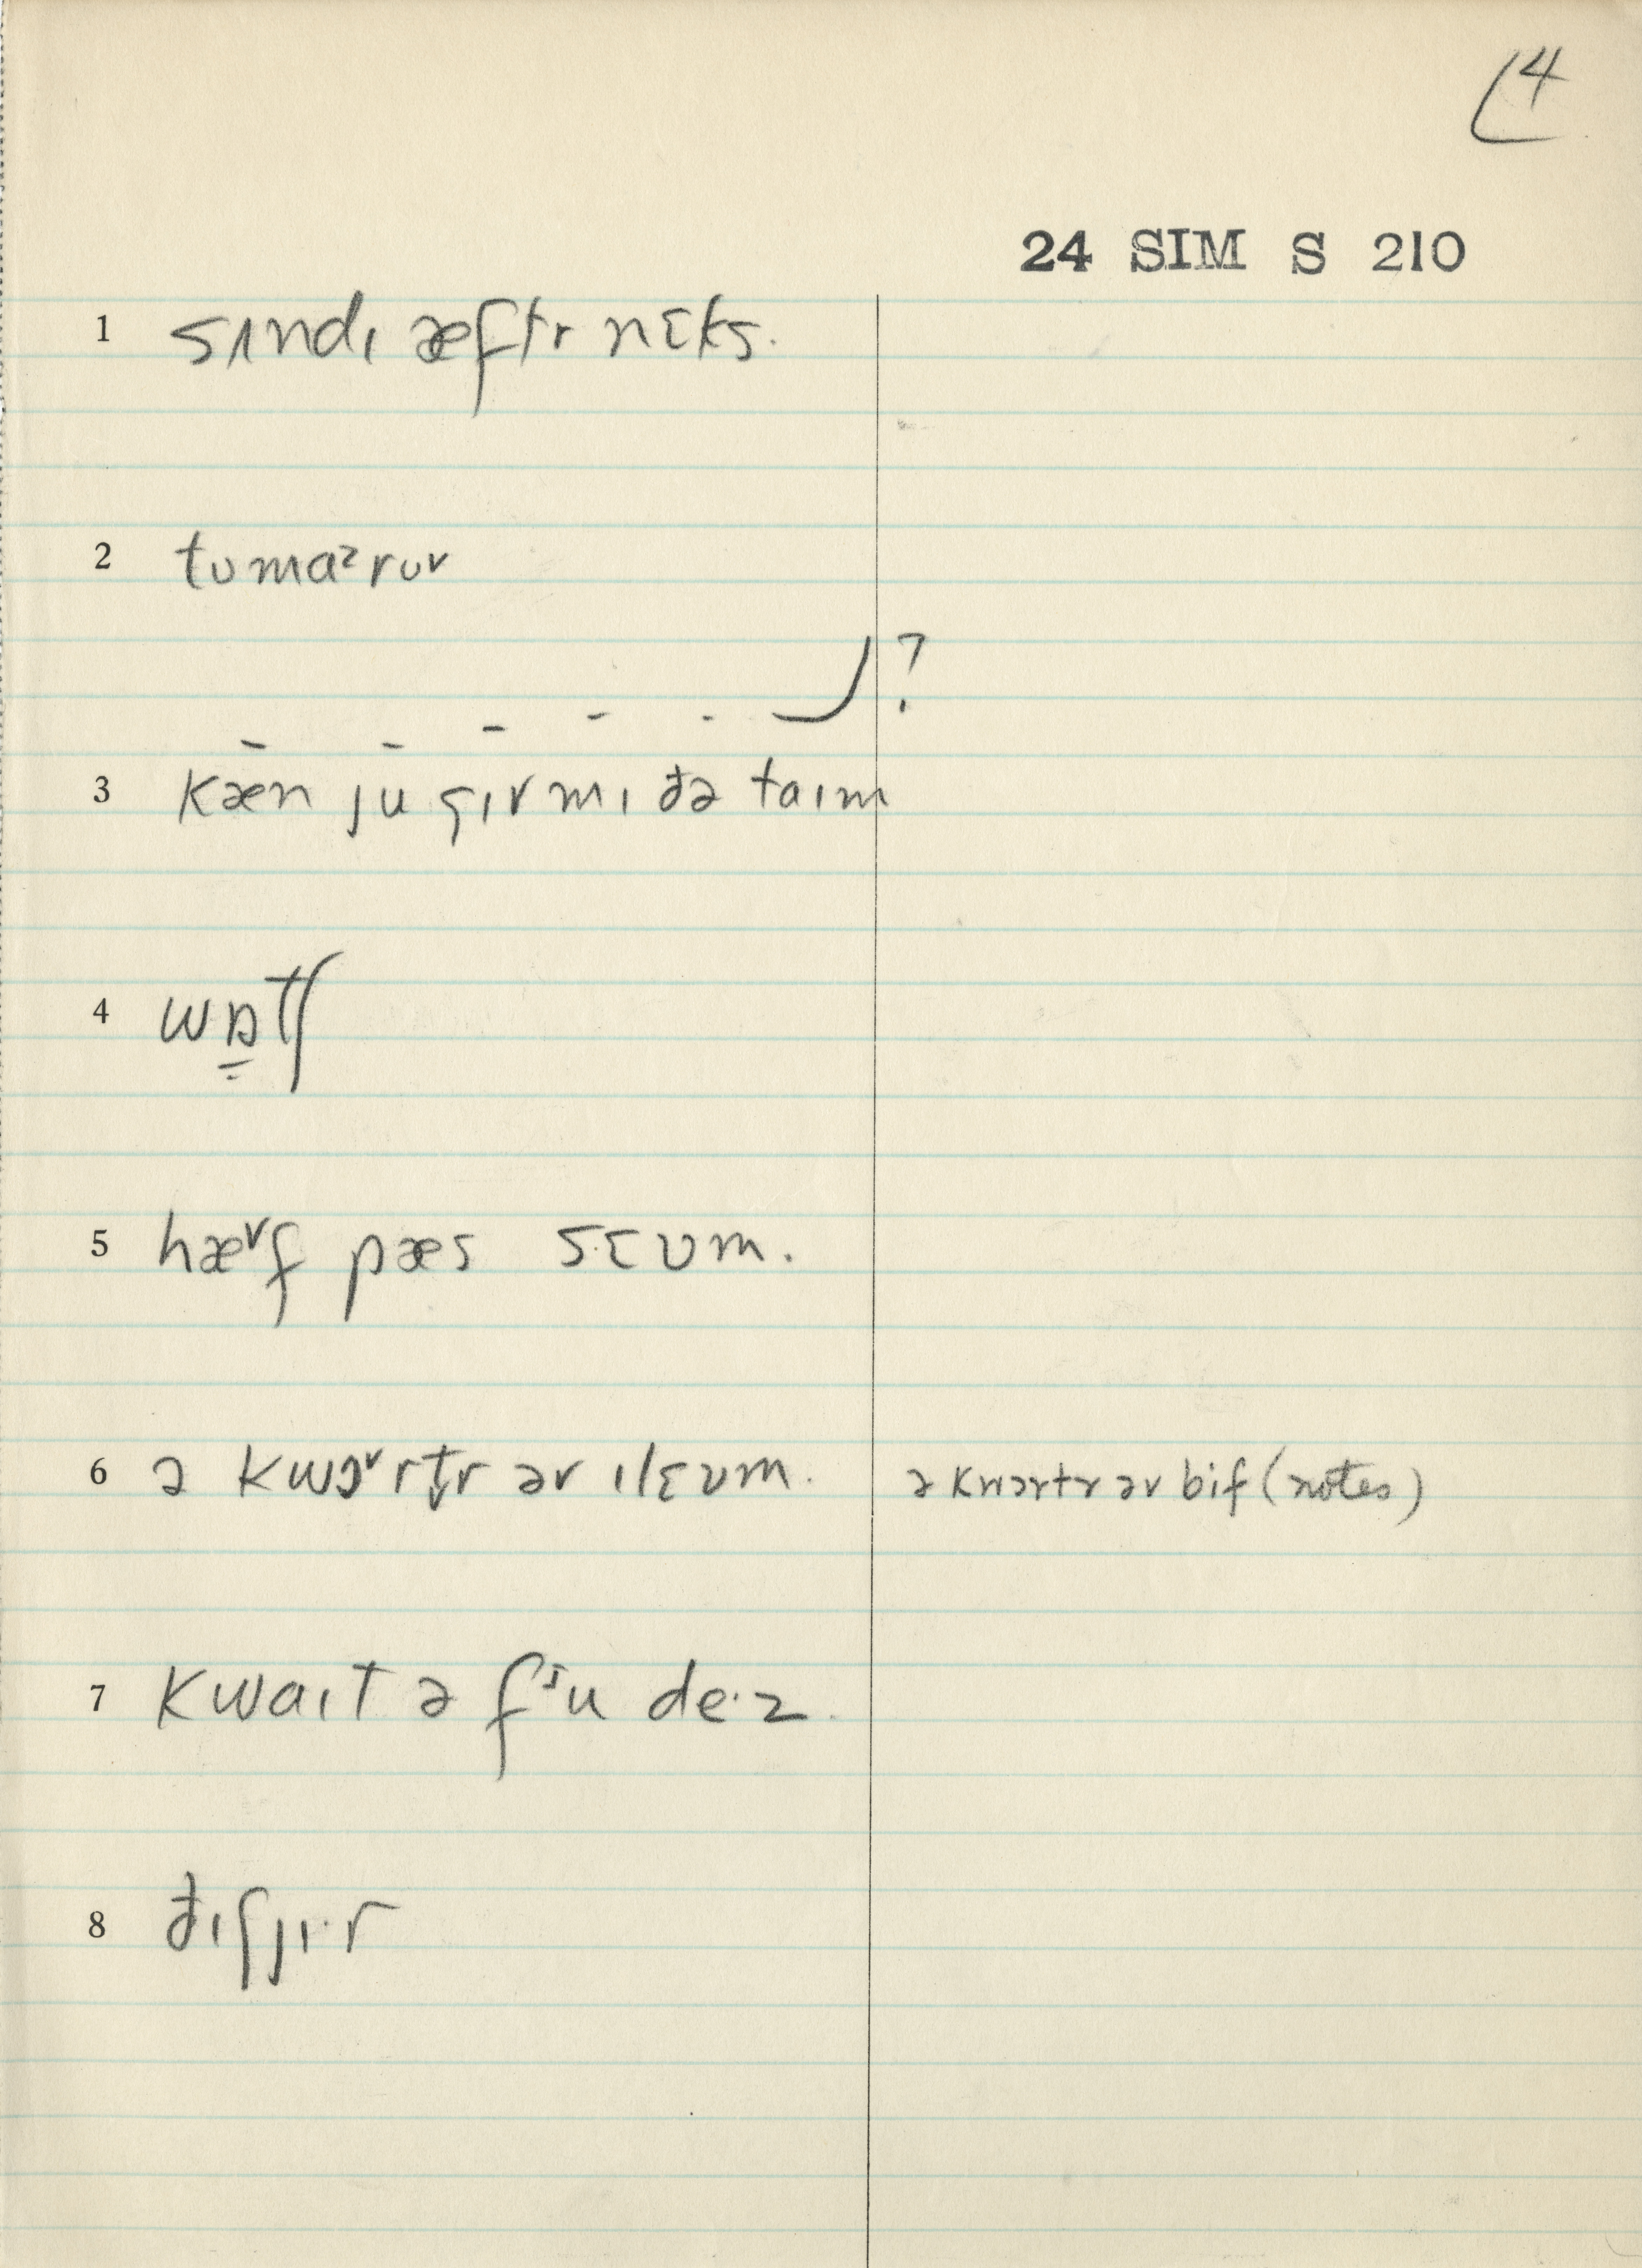 4
24 SIM S 210
1 sʌndɪ æftr nɛks.
2 tʊmaᵊrʊv
?
3 kæn ju gɪv mɪ ðə taɪm
4 wɒtʃ
5 hæᵛf pæs sɛʊm.
6 ə kwɔᵛrt̬r əv ɪlɛʊm. ə kwɔrtr əv bif (notes)
7 kwaɪt ə fʲu de·z.
8 ðɪʃjɪ·r